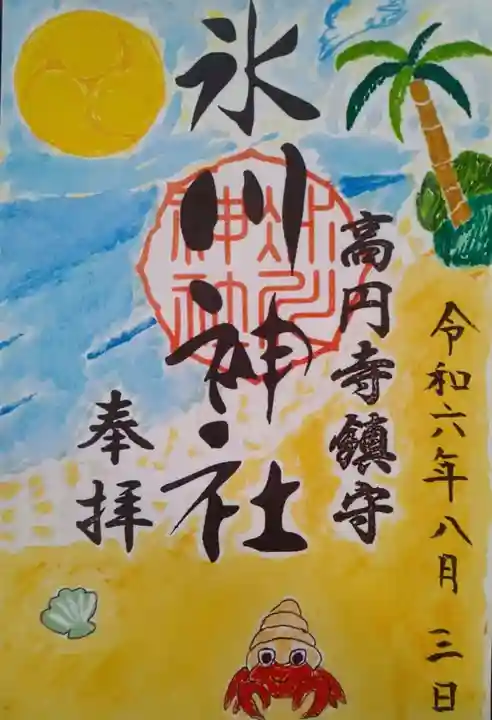 令和六年八月三日
高円寺鎮守
氷川神社
奉拝
氷川
神社